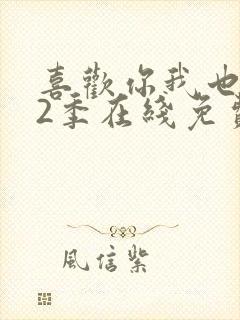 喜歡你我也
2季在綫免費
風信紫